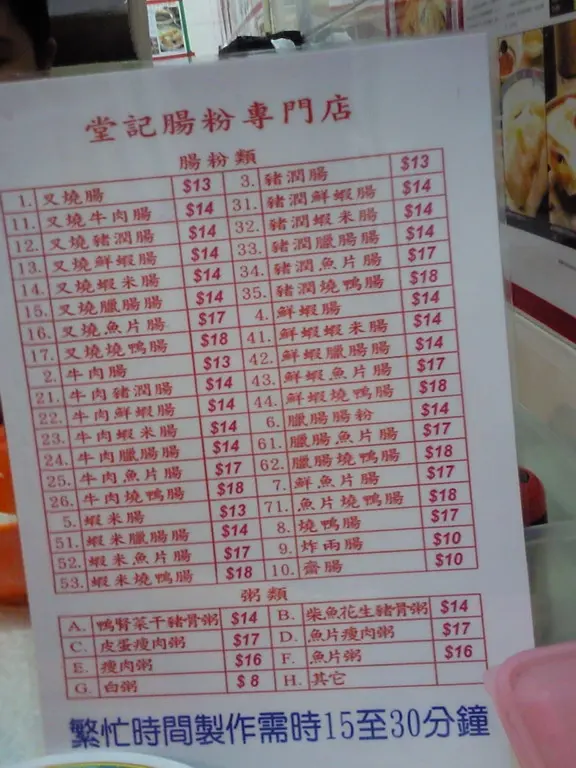 堂記腸粉專門店
腸粉類
1. 叉燒腸 $13 3. 豬潤腸 $13
11. 叉燒牛肉腸 $14 31. 豬潤鮮蝦腸 $14
12. 叉燒豬潤腸 $14 32. 豬潤蝦米腸 $14
13. 叉燒鮮蝦腸 $14 33. 豬潤臘腸腸 $14
14. 叉燒蝦米腸 $14 34. 豬潤魚片腸 $17
15. 叉燒臘腸腸 $14 35. 豬潤燒鴨腸 $18
16. 叉燒魚片腸 $17 4. 鮮蝦腸 $14
17. 叉燒燒鴨腸 $18 41. 鮮蝦蝦米腸 $14
2. 牛肉腸 $13 42. 鮮蝦臘腸腸 $14
21. 牛肉豬潤腸 $14 43. 鮮蝦魚片腸 $17
22. 牛肉鮮蝦腸 $14 44. 鮮蝦燒鴨腸 $18
23. 牛肉蝦米腸 $14 6. 臘腸腸粉 $14
24. 牛肉臘腸腸 $14 61. 臘腸魚片腸 $17
25. 牛肉魚片腸 $17 62. 臘腸燒鴨腸 $18
26. 牛肉燒鴨腸 $18 7. 鮮魚片腸 $17
5. 蝦米腸 $13 71. 魚片燒鴨腸 $18
51. 蝦米臘腸腸 $14 8. 燒鴨腸 $17
52. 蝦米魚片腸 $17 9. 炸兩腸 $10
53. 蝦米燒鴨腸 $18 10. 齋腸 $10
粥類
A. 鴨腎菜干豬骨粥 $14 B. 柴魚花生豬骨粥 $14
C. 皮蛋瘦肉粥 $17 D. 魚片瘦肉粥 $17
E. 瘦肉粥 $16 F. 魚片粥 $16
G. 白粥 $8 H. 其它
繁忙時間製作需時15至30分鐘